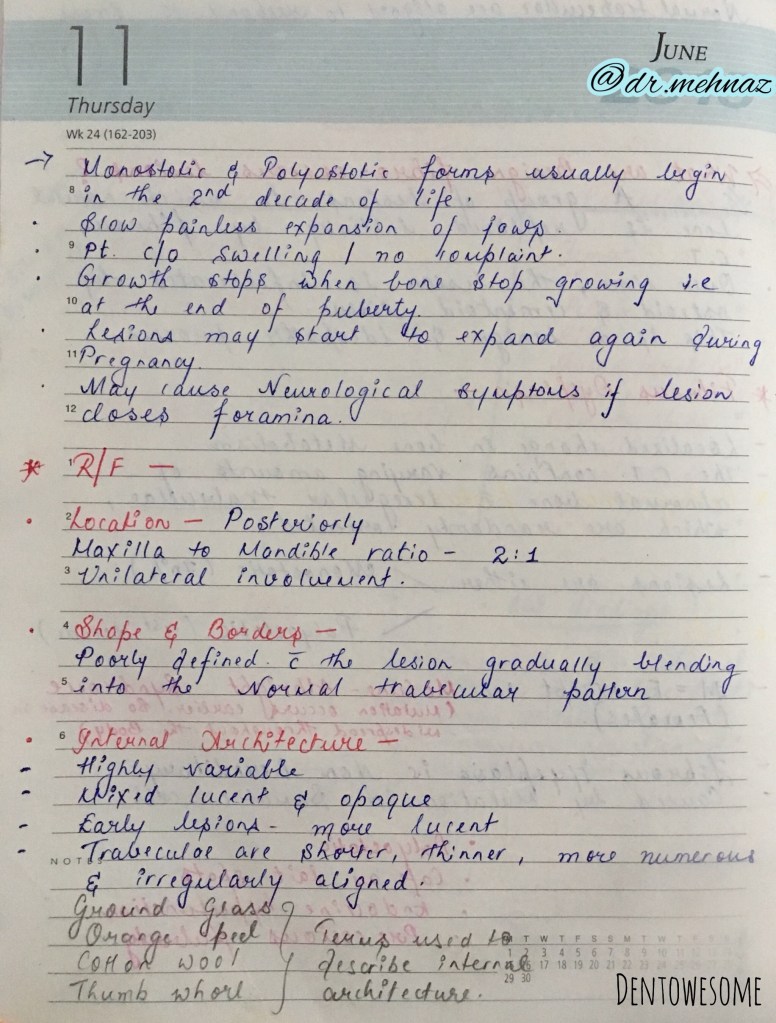 11
JUNE
@dr.mehnaz
Thursday
Wk 24 (162-203)
→ Monostotic & Polyostotic forms usually begin
8 in the 2nd decade of life.
· Slow painless expansion of jaws.
· 9 Pt. c/o swelling / no complaint.
· Growth stops when bone stop growing i.e
10 at the end of puberty.
· Lesions may start to expand again during
11 Pregnancy.
· May cause Neurological symptoms if lesion
12 closes foramina.
* 1 R/F —
· 2 Location — Posteriorly
Maxilla to Mandible ratio - 2:1
3 Unilateral involvement.
· 4 Shape & Borders —
Poorly defined. c̄ the lesion gradually blending
5 into the Normal trabecular pattern
· 6 Internal Architecture —
- Highly variable
- Mixed lucent & opaque
- Early lesions - more lucent
- Trabeculae are shorter, thinner, more numerous
NOT
& irregularly aligned.
Ground Glass
Orange peel } Terms used to
Cotton wool describe internal
Thumb whorl architecture.
M T W T F S S M T W T F S S
1 2 3 4 5 6 7 8 9 10 11 12 13 14
15 16 17 18 19 20 21 22 23 24 25 26 27 28
29 30
DENTOWESOME